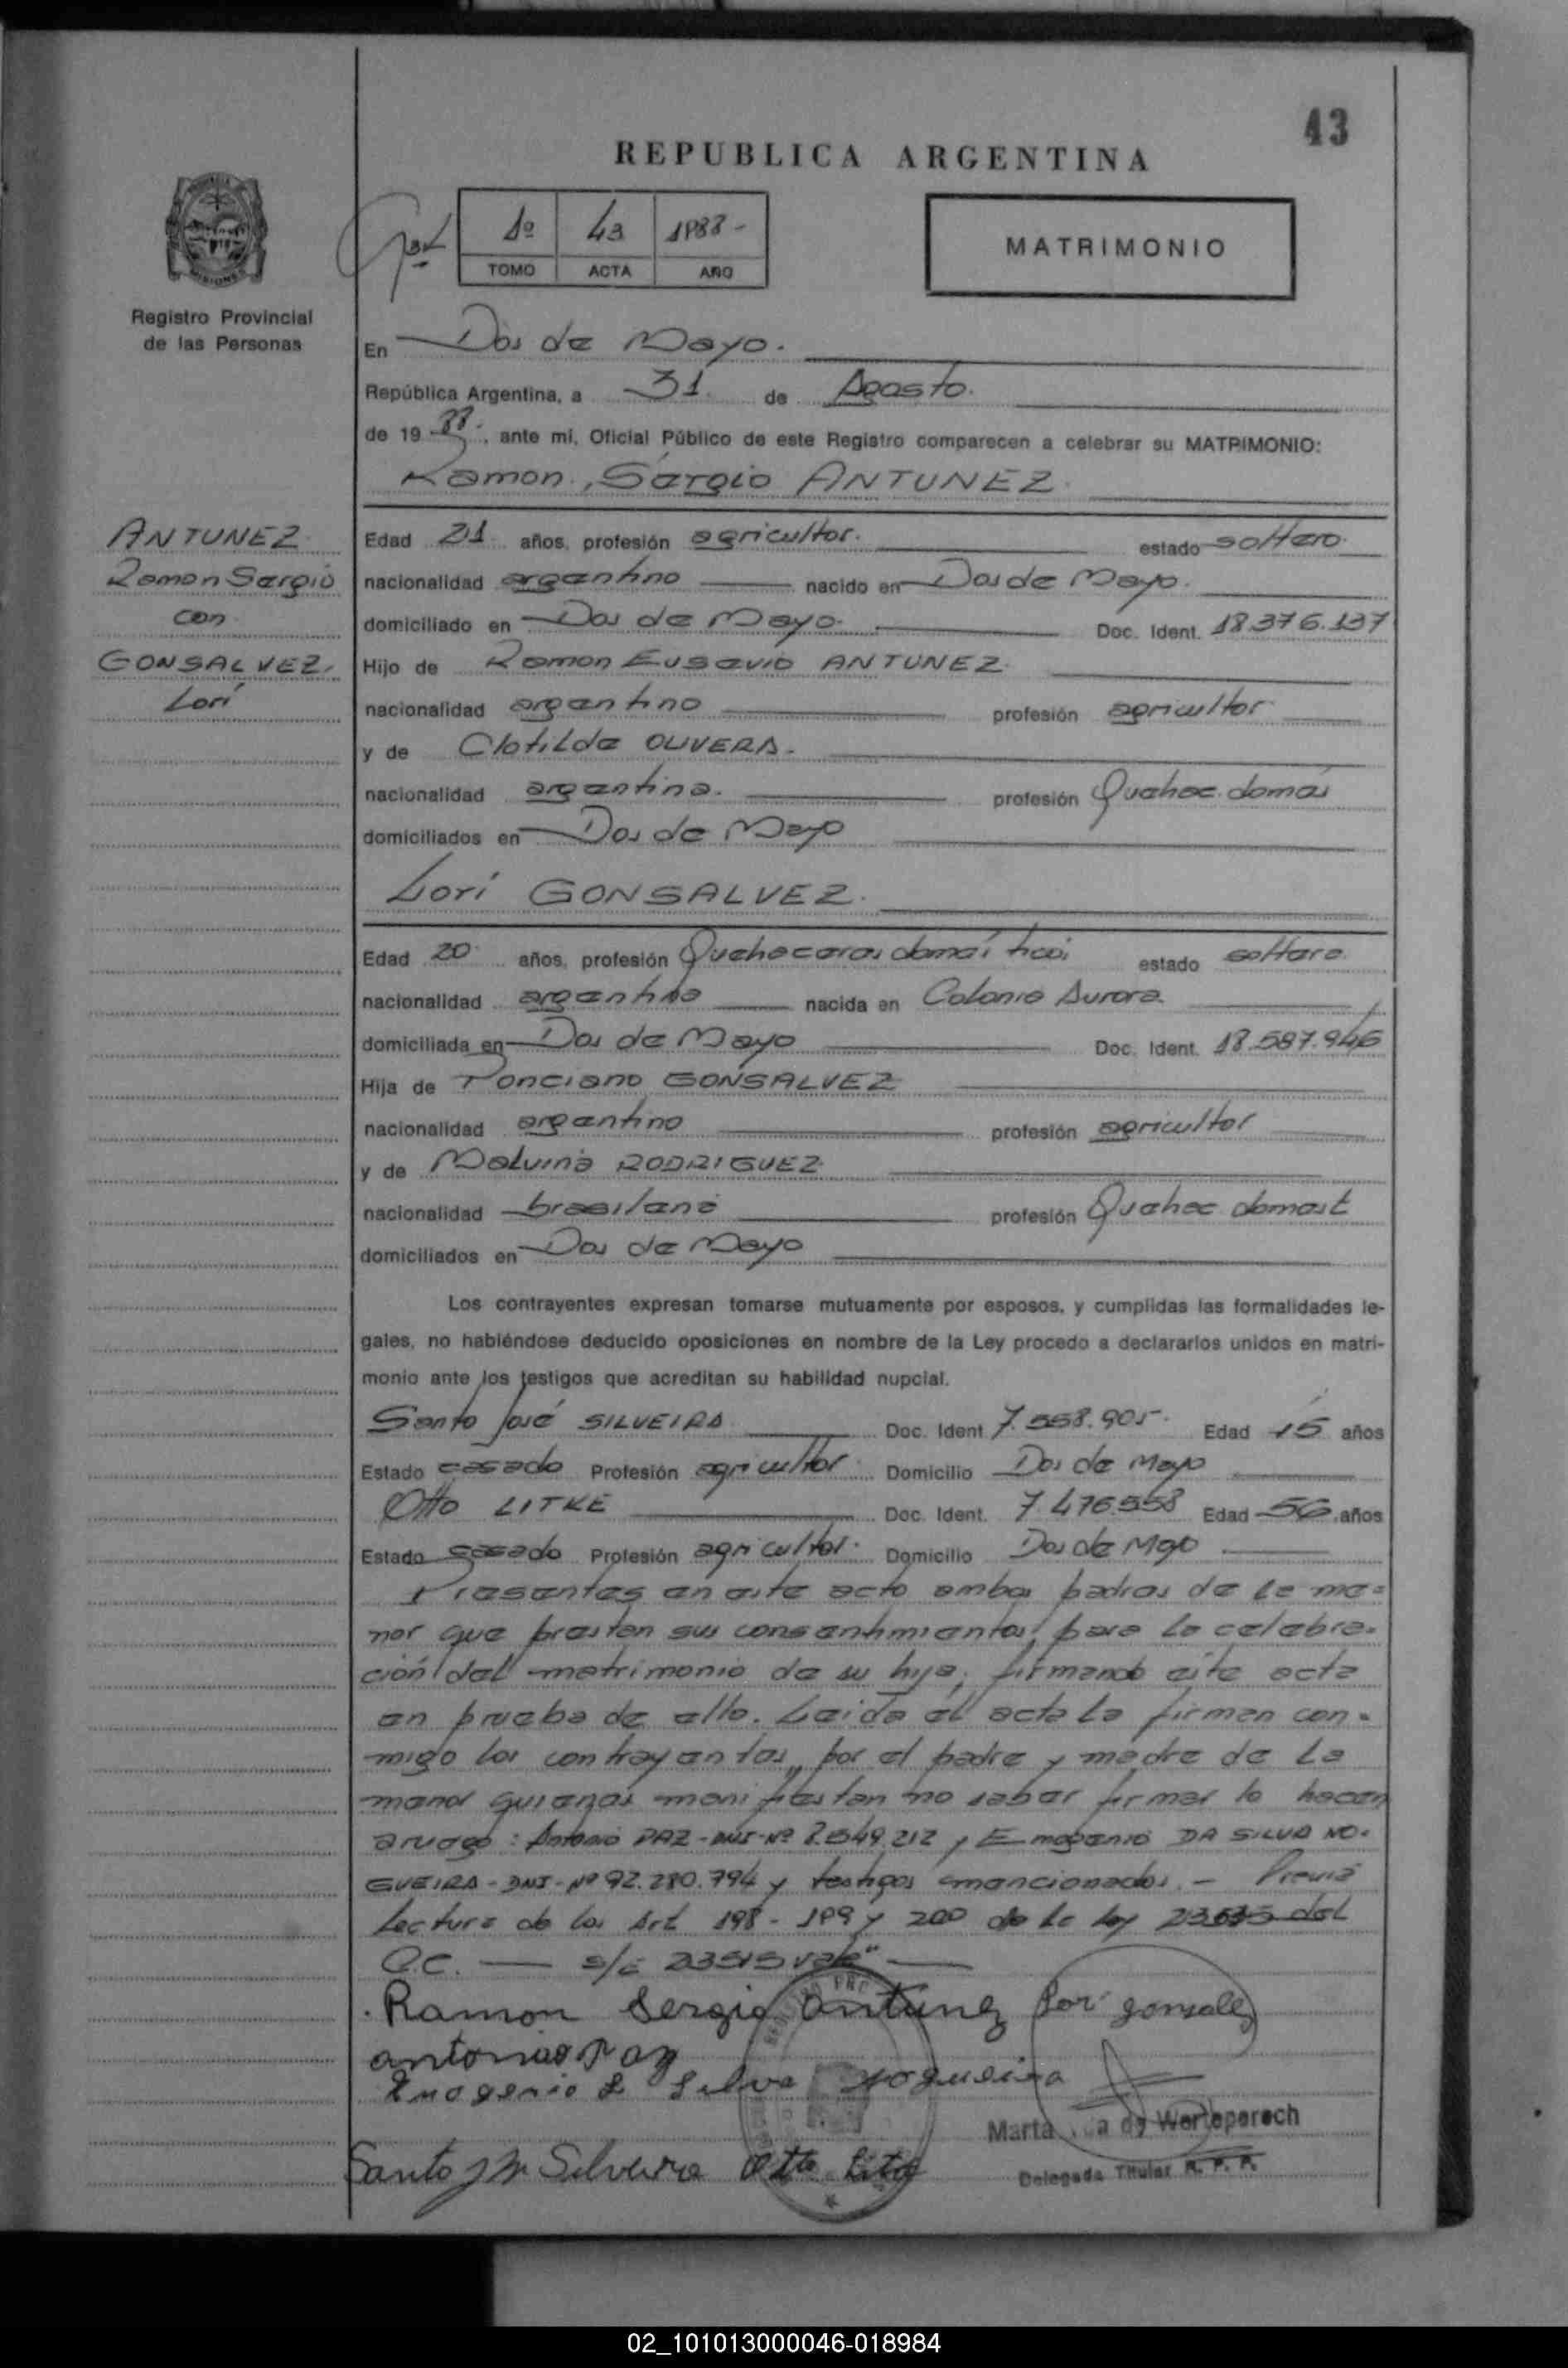 43
REPUBLICA ARGENTINA
1º 43 1988-
TOMO ACTA AÑO
MATRIMONIO
MISIONES
Registro Provincial
de las Personas
En Dos de Mayo.
República Argentina, a 31 de Agosto.
de 1988., ante mí, Oficial Público de este Registro comparecen a celebrar su MATRIMONIO:
Ramon, Sergio ANTUNEZ
ANTUNEZ
Ramon Sergio
con
GONSALVEZ,
Lorí
Edad 21 años, profesión agricultor. estado soltero.
nacionalidad argentino nacido en Dos de Mayo.
domiciliado en Dos de Mayo. Doc. Ident. 18.376.137
Hijo de Ramon Eusevio ANTUNEZ
nacionalidad argentino profesión agricultor
y de Clotilde OLIVERA.
nacionalidad argentina. profesión Quehac. domés
domiciliados en Dos de Mayo
Lorí GONSALVEZ.
Edad 20 años, profesión Quehaceres domésticos estado soltera
nacionalidad argentina nacida en Colonia Aurora.
domiciliada en Dos de Mayo Doc. Ident. 18.587.946
Hija de Ponciano GONSALVEZ
nacionalidad argentino profesión agricultor
y de Malvina RODRIGUEZ
nacionalidad brasilena profesión Quehac domest
domiciliados en Dos de Mayo
Los contrayentes expresan tomarse mutuamente por esposos, y cumplidas las formalidades le-
gales, no habiéndose deducido oposiciones en nombre de la Ley procedo a declararlos unidos en matri-
monio ante los testigos que acreditan su habilidad nupcial.
Santo José SILVEIRA Doc. Ident 7.558.905. Edad años
Estado casado Profesión agricultor. Domicilio Dos de Mayo
Otto LITKE Doc. Ident. 7.476.558 Edad 56 años
Estado casado Profesión agricultor. Domicilio Dos de Mayo
Presentes en este acto ambos padres de la me=
nor que prestan sus consentimientos para la celebra-
ción del matrimonio de su hija, firmando este acta
en prueba de ello. Leida el acta la firman con-
migo los contrayentes, por el padre y madre de la
menor quienes manifiestan no saber firmar lo hacen
aruego: Antonio PAZ - DNI - Nº 7.549.212 y Emogenio DA SILVA NO-
GUEIRA - DNI - Nº 92.280.794 y testigos mencionados. - Previa
Lectura de los Art 198 - 199 y 200 de la ley del
C.C. — s/c 23515 vale"
Ramon Sergio Antunez Lori gonsalez
antonio Paz
Emogenio D Silva nogueira
Marta a de Werleperech
Santo Silveira Otto Litke
Delegada Titular R. P. P.
02_101013000046-018984